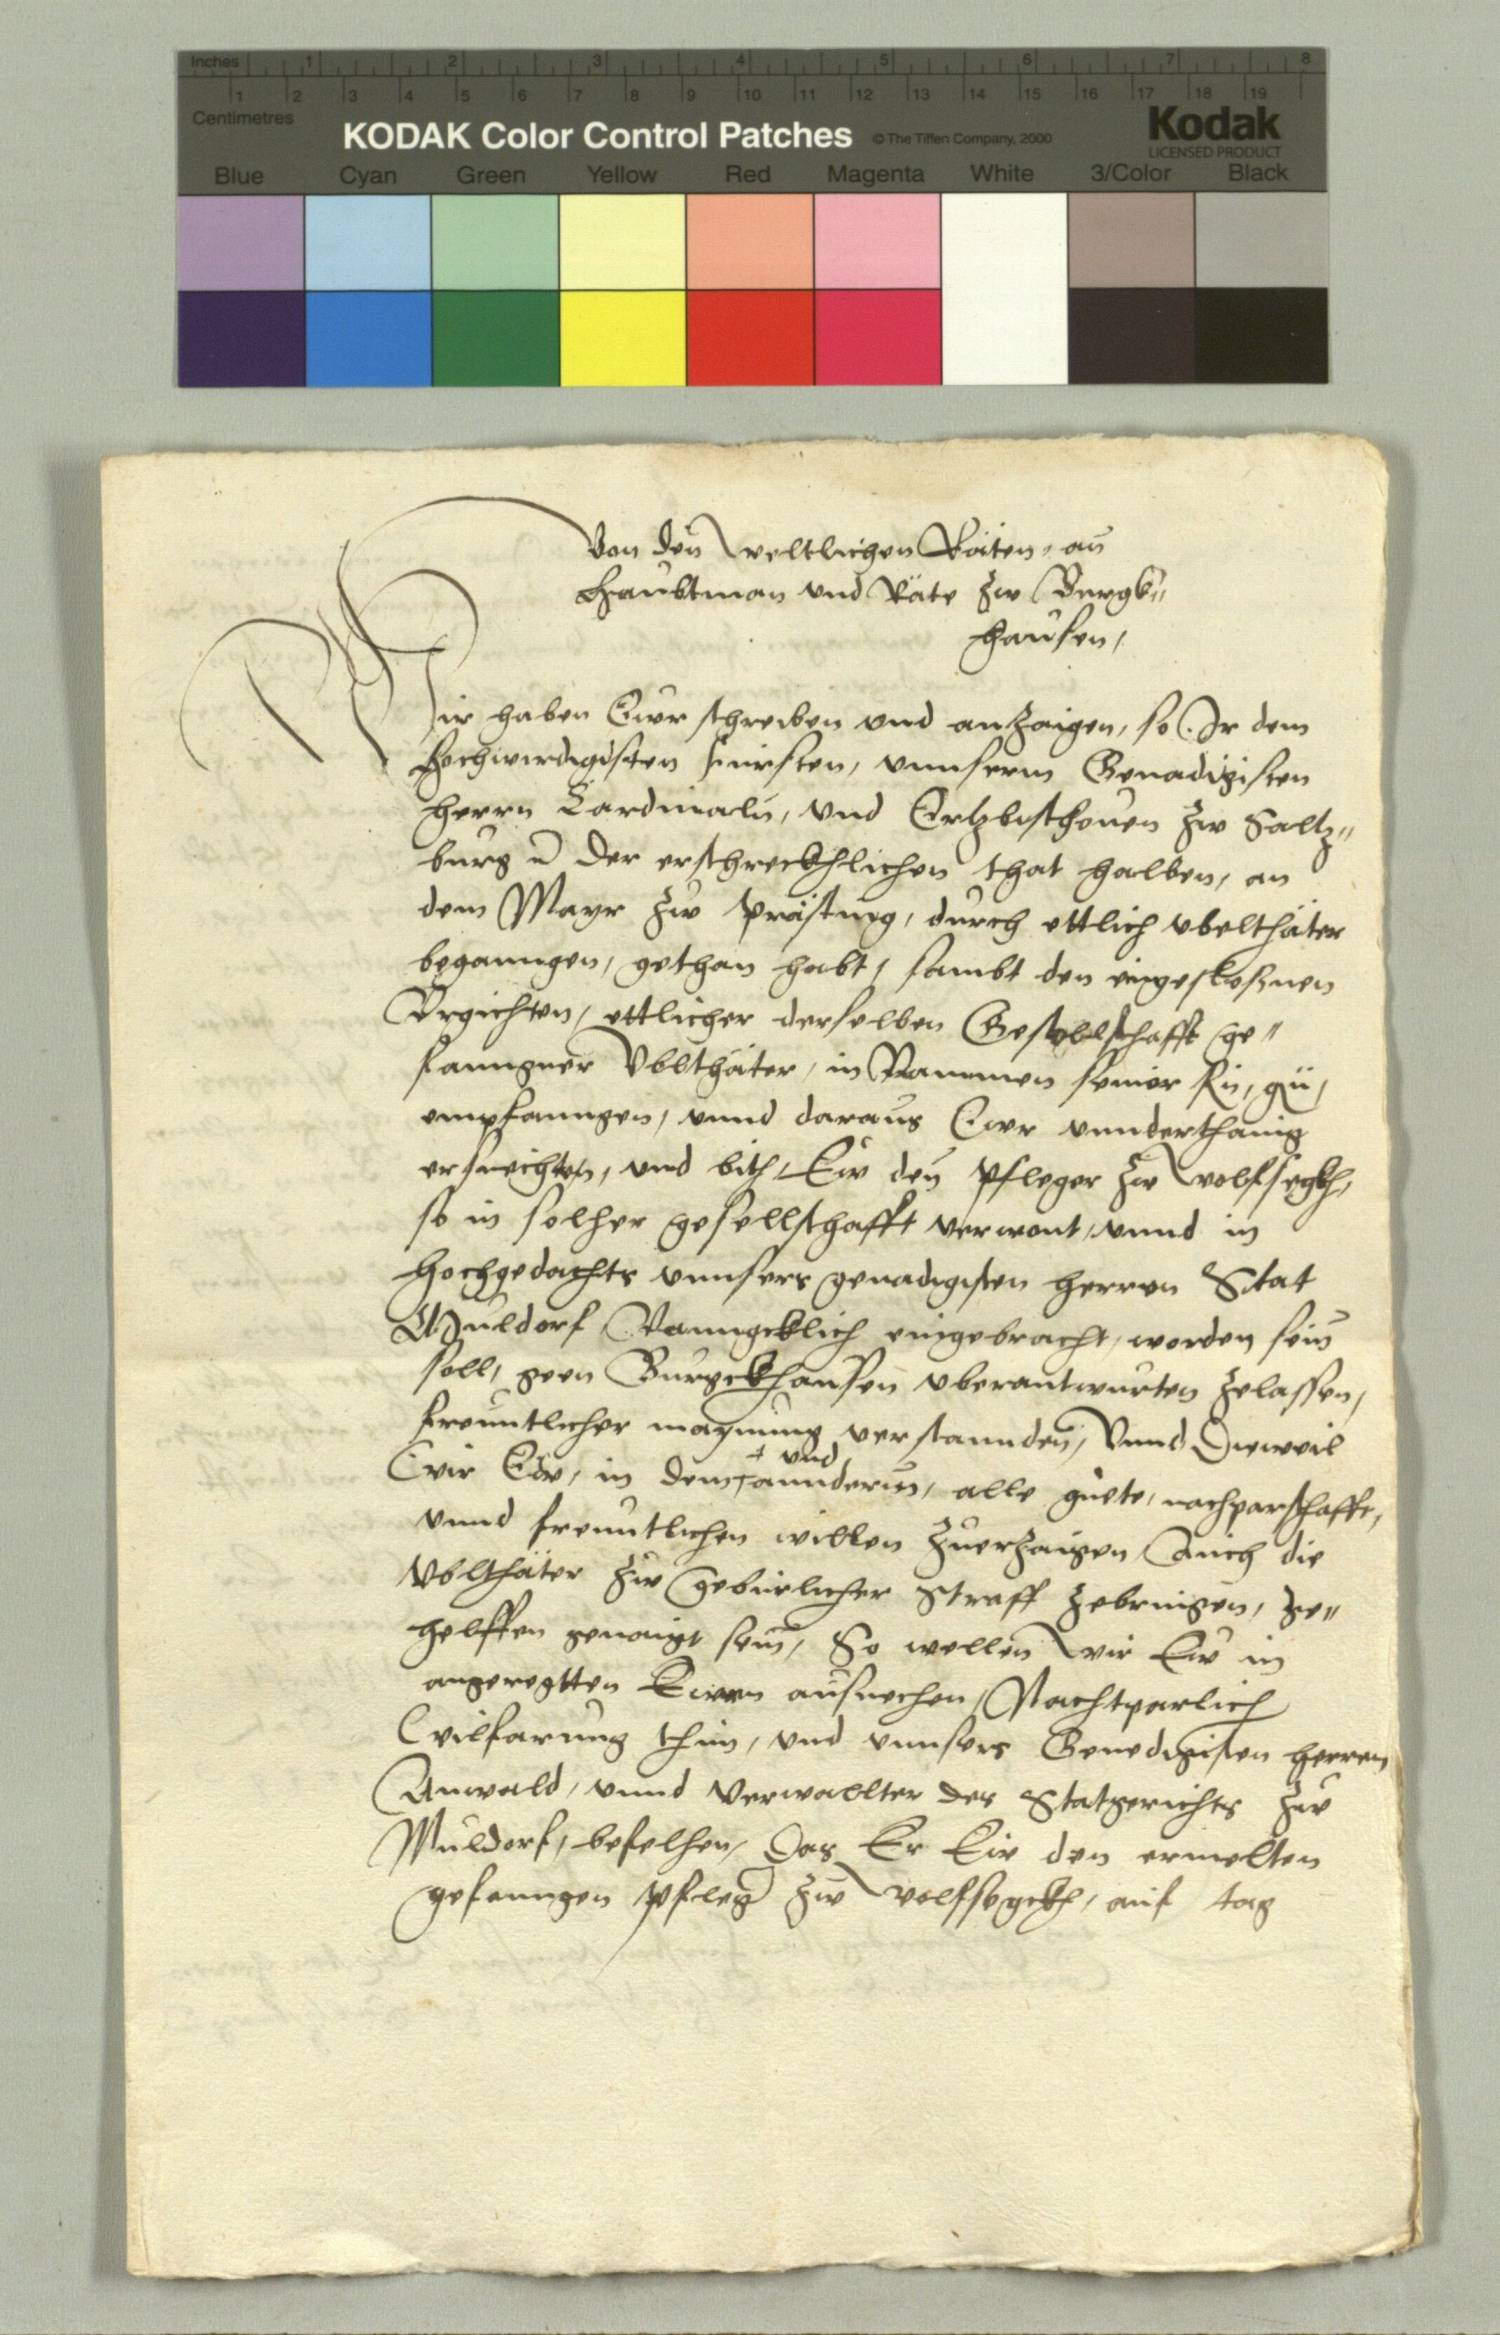 Inches 1 2 3 4 5 6 7 8
1 2 3 4 5 6 7 8 9 10 11 12 13 14 15 16 17 18 19
Centimetres
KODAK Color Control Patches © The Tiffen Company, 2000 Kodak
LICENSED PRODUCT
Blue Cyan Green Yellow Red Magenta White 3/Color Black
Von den weltlichen Räten, an
Haubtman und Räte zw Burgk„
hausen,
Wir haben Ewr schreiben und anzaigen, so Ir dem
hochwirdigisten fursten, unnserm Genadigisten
herrn Cardinaln, und Ertzbischoven zw Saltz„
burg der erschreckhlichen that halben, an
dem Mayr zw durch ettlich ubelthäter
beganngen, gethan habt, sambt den eingeschlosnen
Urgichten, ettlicher derselben Gesellschafft ge„
fanngner Ublthäter, in Nammen seiner
empfanngen, unnd daraus Ewr unnderthanig
ersuechten, und bith, Ew den pfleger zw wolfsegkh,
so in solher gesellschafft verwont, unnd in
hochgedachts unnsers genadigisten herren Stat
Muldorf Vanngcklich eingebracht, worden sein
soll, geen Burgckhausen uberantwurten zelassen,
freuntlicher maynung verstannden, Unnd Dieweil
wir Ew, in dem und annderm, alle guete, nachparschafft,
unnd freuntlichen willen zuerzaigen Auch die
Ublthäter zw gebürlicher Straff zebringen, ze„
helffen genaigt sein, So wellen wir Ew in
angeregtten Ewrn ansuechen, Nachtparlich
wilfarung thun, und unnsers Genedigisten herren
Anwald, unnd Verwallter des Statgerichts zw
Muldorf, befelhen, Das Er Ew den ermelten
gefanngen pfleger zw wolfsegckh, auf tag